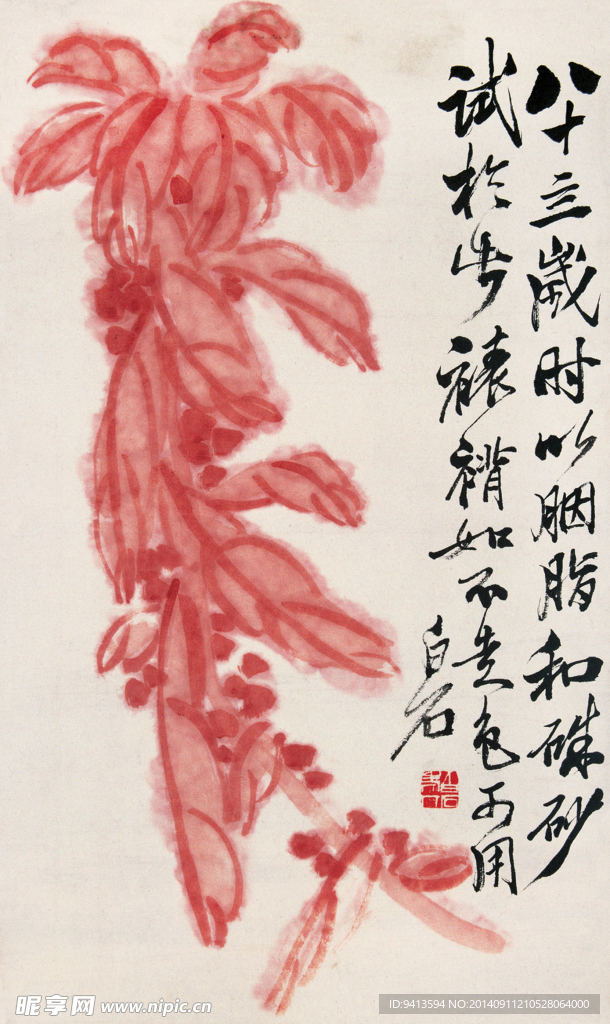 八十三歲时以胭脂和硃砂
试於此裱褙如不走色可用
白石
昵享网 www.nipic.cn
ID:9413594 NO:20140911210528064000